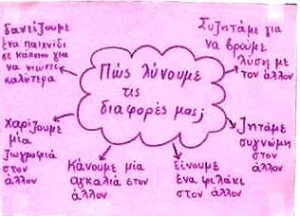 δανείζουμε
ένα παιχνίδι
σε κάποιον για
να νιώσει
καλύτερα
Συζητάμε για
να βρούμε
λύση με
τον άλλον
Πώς λύνουμε
τις
διαφορές μας;
Χαρίζουμε
μία
ζωγραφιά
στον
άλλον
Κάνουμε μία
αγκαλιά στον
άλλον
Δίνουμε
ένα φιλάκι
στον άλλον
Ζητάμε
συγνώμη
στον
άλλον